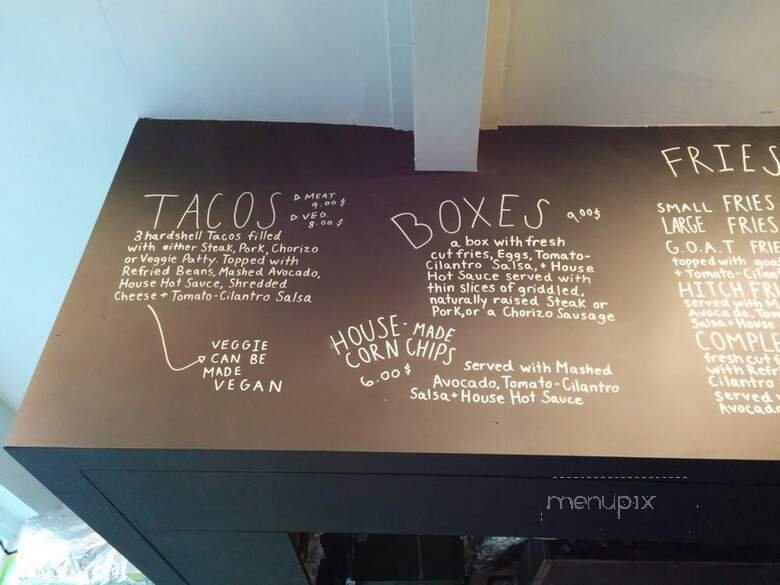 TACOS
▷ MEAT
9.00 $
▷ VEG.
8.00 $
3 hardshell Tacos filled
with either Steak, Pork, Chorizo
or Veggie Patty. Topped with
Refried Beans, Mashed Avocado,
House Hot Sauce, Shredded
Cheese + Tomato-Cilantro Salsa
VEGGIE
CAN BE
MADE
VEGAN
BOXES 9.00$
a box with fresh
cut fries, Eggs, Tomato-
Cilantro Salsa, + House
Hot Sauce served with
thin slices of griddled,
naturally raised Steak or
Pork, or a Chorizo Sausage
HOUSE-MADE
CORN CHIPS
6.00 $
served with Mashed
Avocado, Tomato-Cilantro
Salsa + House Hot Sauce
FRIES
SMALL FRIES
LARGE FRIES
G.O.A.T FRIE
topped with goa
+ Tomato-Cilan
HITCH FR
served with
Avocado, Tom
Salsa + House
COMPLE
fresh cut f
with Refr
Cilantro
served
Avocad
menupix